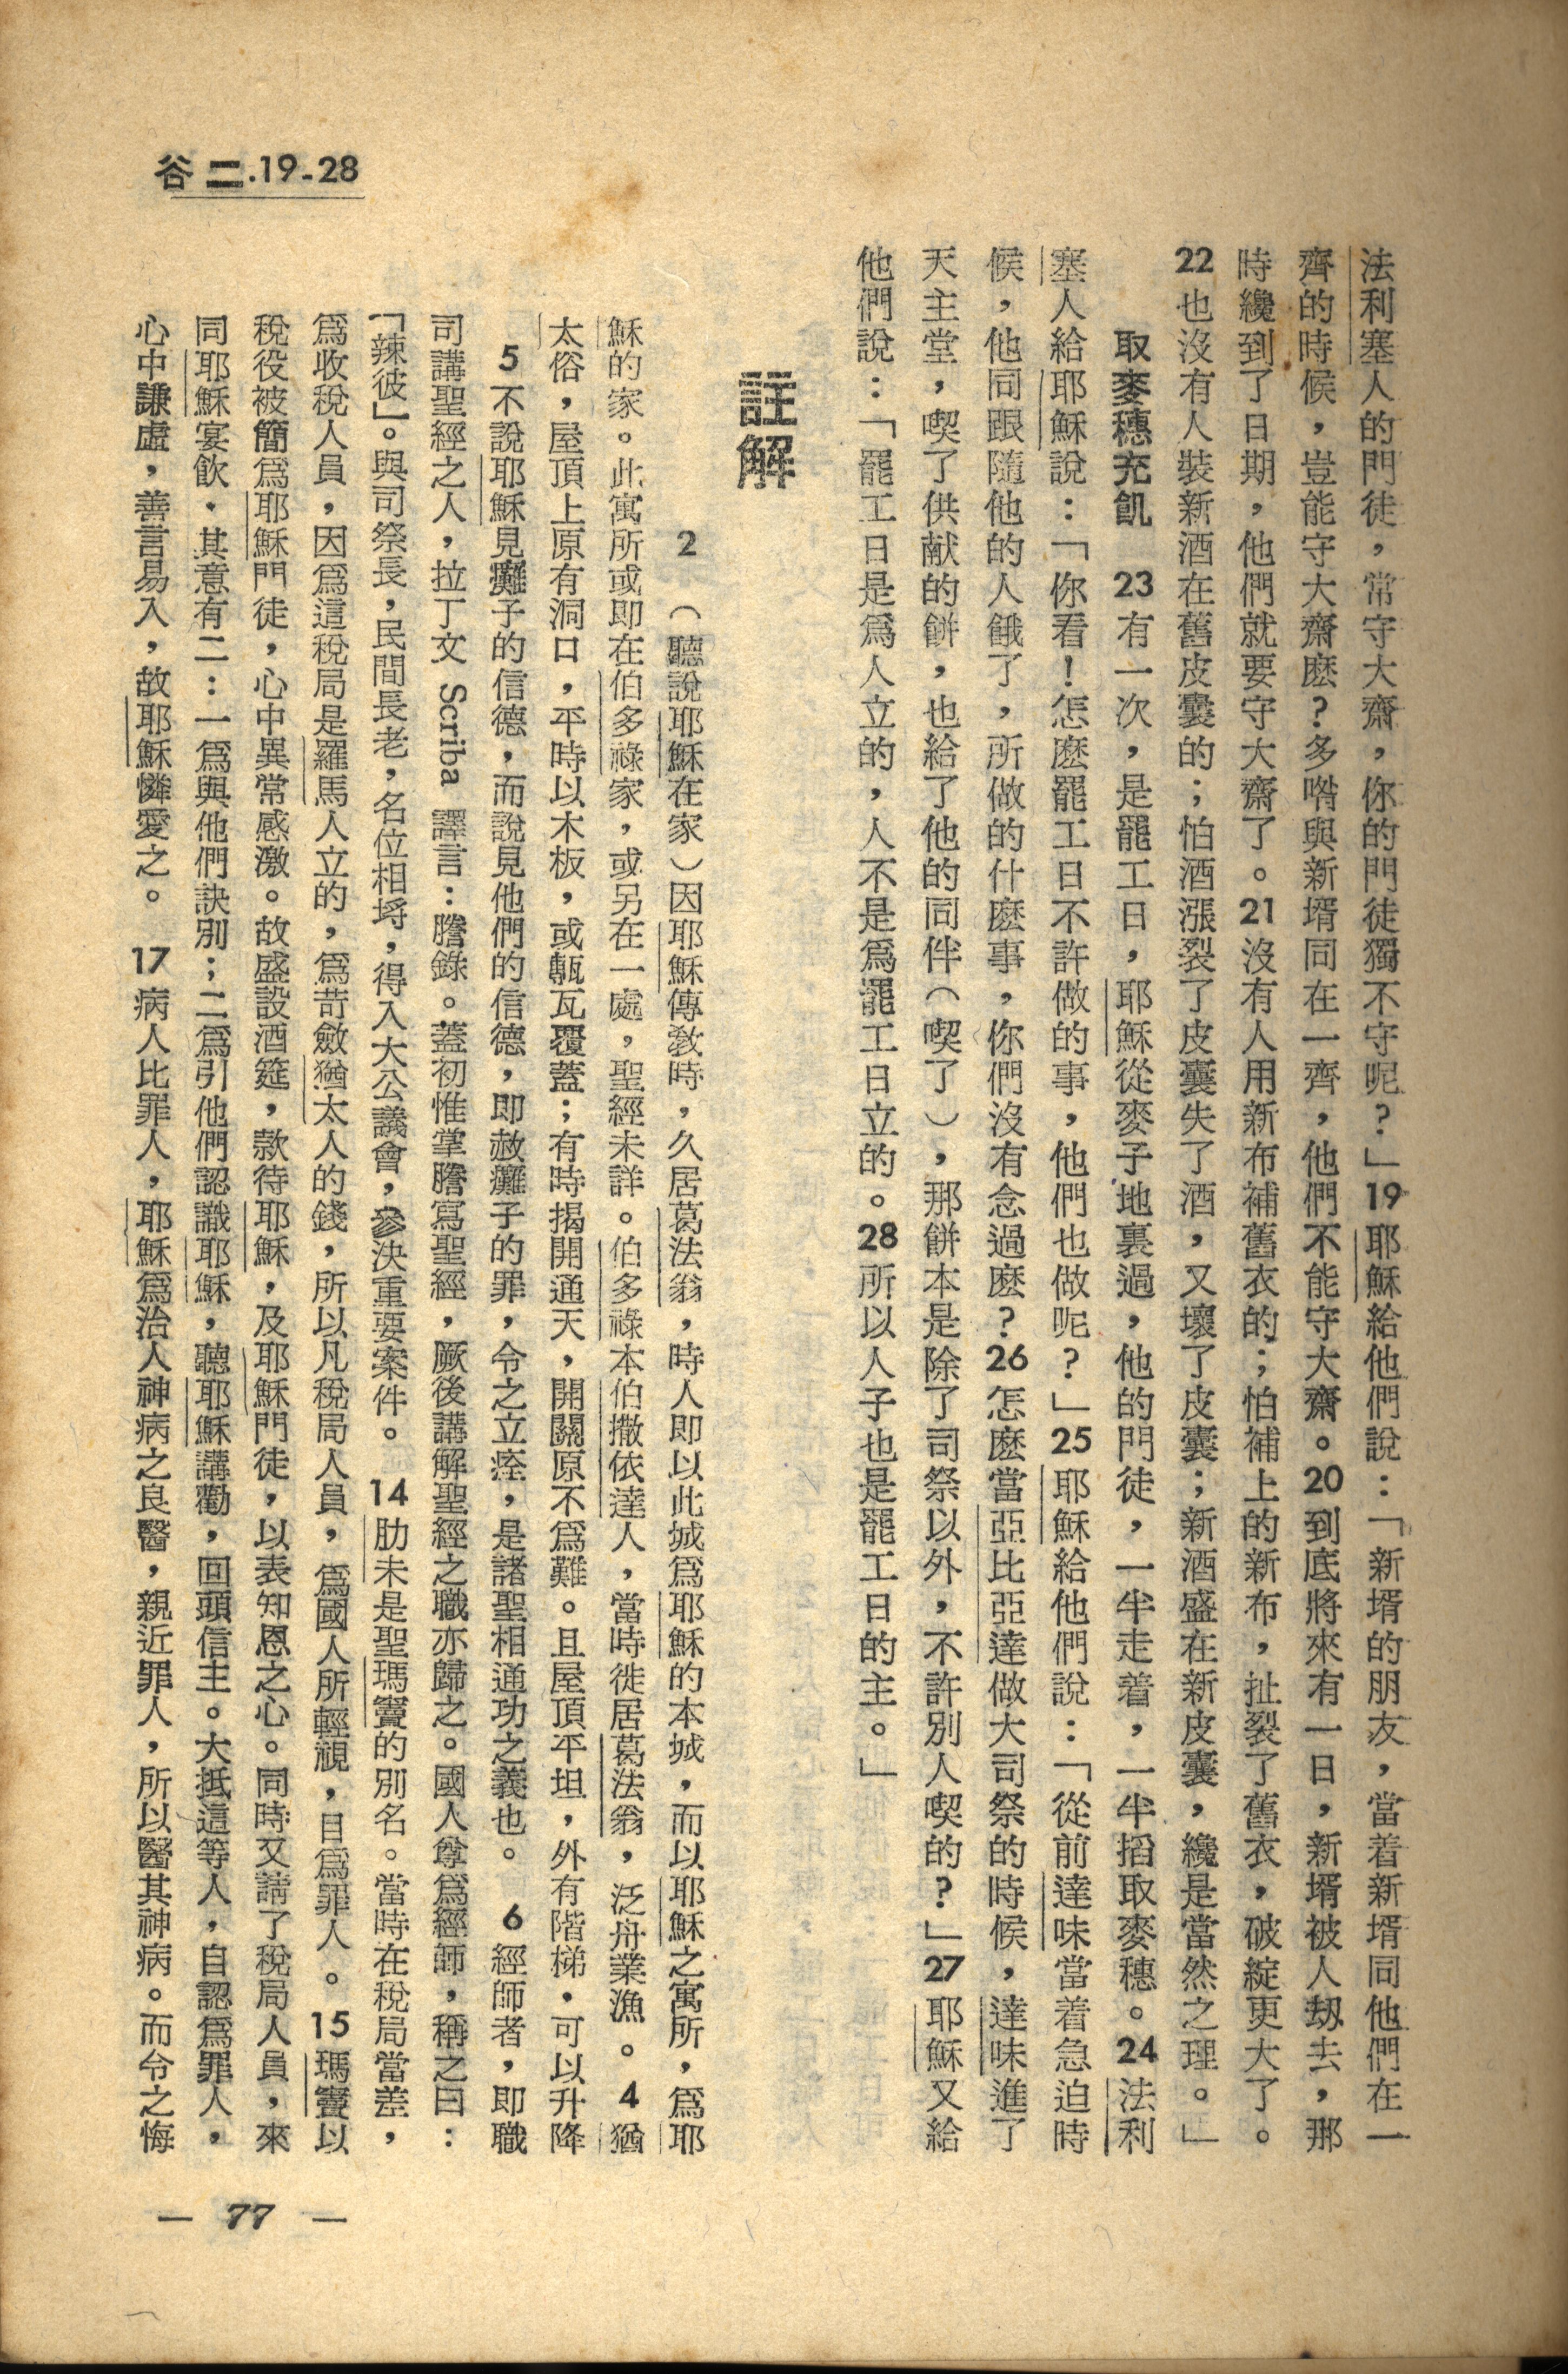 谷二.19-28
法利塞人的門徒，常守大齋，你的門徒獨不守呢？」19耶穌給他們說：「新壻的朋友，當着新壻同他們在一
齊的時候，豈能守大齋麽？多喒與新壻同在一齊，他們不能守大齋。20到底將來有一日，新壻被人刼去，那
時纔到了日期，他們就要守大齋了。21沒有人用新布補舊衣的；怕補上的新布，扯裂了舊衣，破綻更大了。
22也沒有人裝新酒在舊皮囊的；怕酒漲裂了皮囊失了酒，又壞了皮囊；新酒盛在新皮囊，纔是當然之理。」
取麥穗充飢　23有一次，是罷工日，耶穌從麥子地裏過，他的門徒，一半走着，一半搯取麥穗。24法利
塞人給耶穌說：「你看！怎麽罷工日不許做的事，他們也做呢？」25耶穌給他們說：「從前達味當着急迫時
候，他同跟隨他的人餓了，所做的什麽事，你們沒有念過麽？26怎麽當亞比亞達做大司祭的時候，達味進了
天主堂，喫了供献的餅，也給了他的同伴（喫了），那餅本是除了司祭以外，不許別人喫的？」27耶穌又給
他們說：「罷工日是爲人立的，人不是爲罷工日立的。28所以人子也是罷工日的主。」
註解
2（聽說耶穌在家）因耶穌傳敎時，久居葛法翁，時人即以此城爲耶穌的本城，而以耶穌之寓所，爲耶
穌的家。此寓所或即在伯多祿家，或另在一處，聖經未詳。伯多祿本伯撒依達人，當時徙居葛法翁，泛舟業漁。4猶
太俗，屋頂上原有洞口，平時以木板，或甎瓦覆蓋；有時揭開通天，開闢原不爲難。且屋頂平坦，外有階梯．可以升降
5不說耶穌見癱子的信德，而說見他們的信德，即赦癱子的罪，令之立痊，是諸聖相通功之義也。　6經師者，即職
司講聖經之人，拉丁文 Scriba 譯言：謄錄。蓋初惟掌謄寫聖經，厥後講解聖經之職亦歸之。國人尊爲經師，稱之曰：
「辣彼」。與司祭長，民間長老，名位相埓，得入大公議會，參決重要案件。　14肋未是聖瑪竇的別名。當時在稅局當差，
爲收稅人員，因爲這稅局是羅馬人立的，爲苛斂猶太人的錢，所以凡稅局人員，爲國人所輕視，目爲罪人。15瑪竇以
稅役被簡爲耶穌門徒，心中異常感激。故盛設酒筵，款待耶穌，及耶穌門徒，以表知恩之心。同時又請了稅局人員，來
同耶穌宴飲．其意有二：一爲與他們訣別；二爲引他們認識耶穌，聽耶穌講勸，回頭信主。大抵這等人，自認爲罪人，
心中謙虛，善言易入，故耶穌憐愛之。　17病人比罪人，耶穌爲治人神病之良醫，親近罪人，所以醫其神病。而令之悔
— 77 —